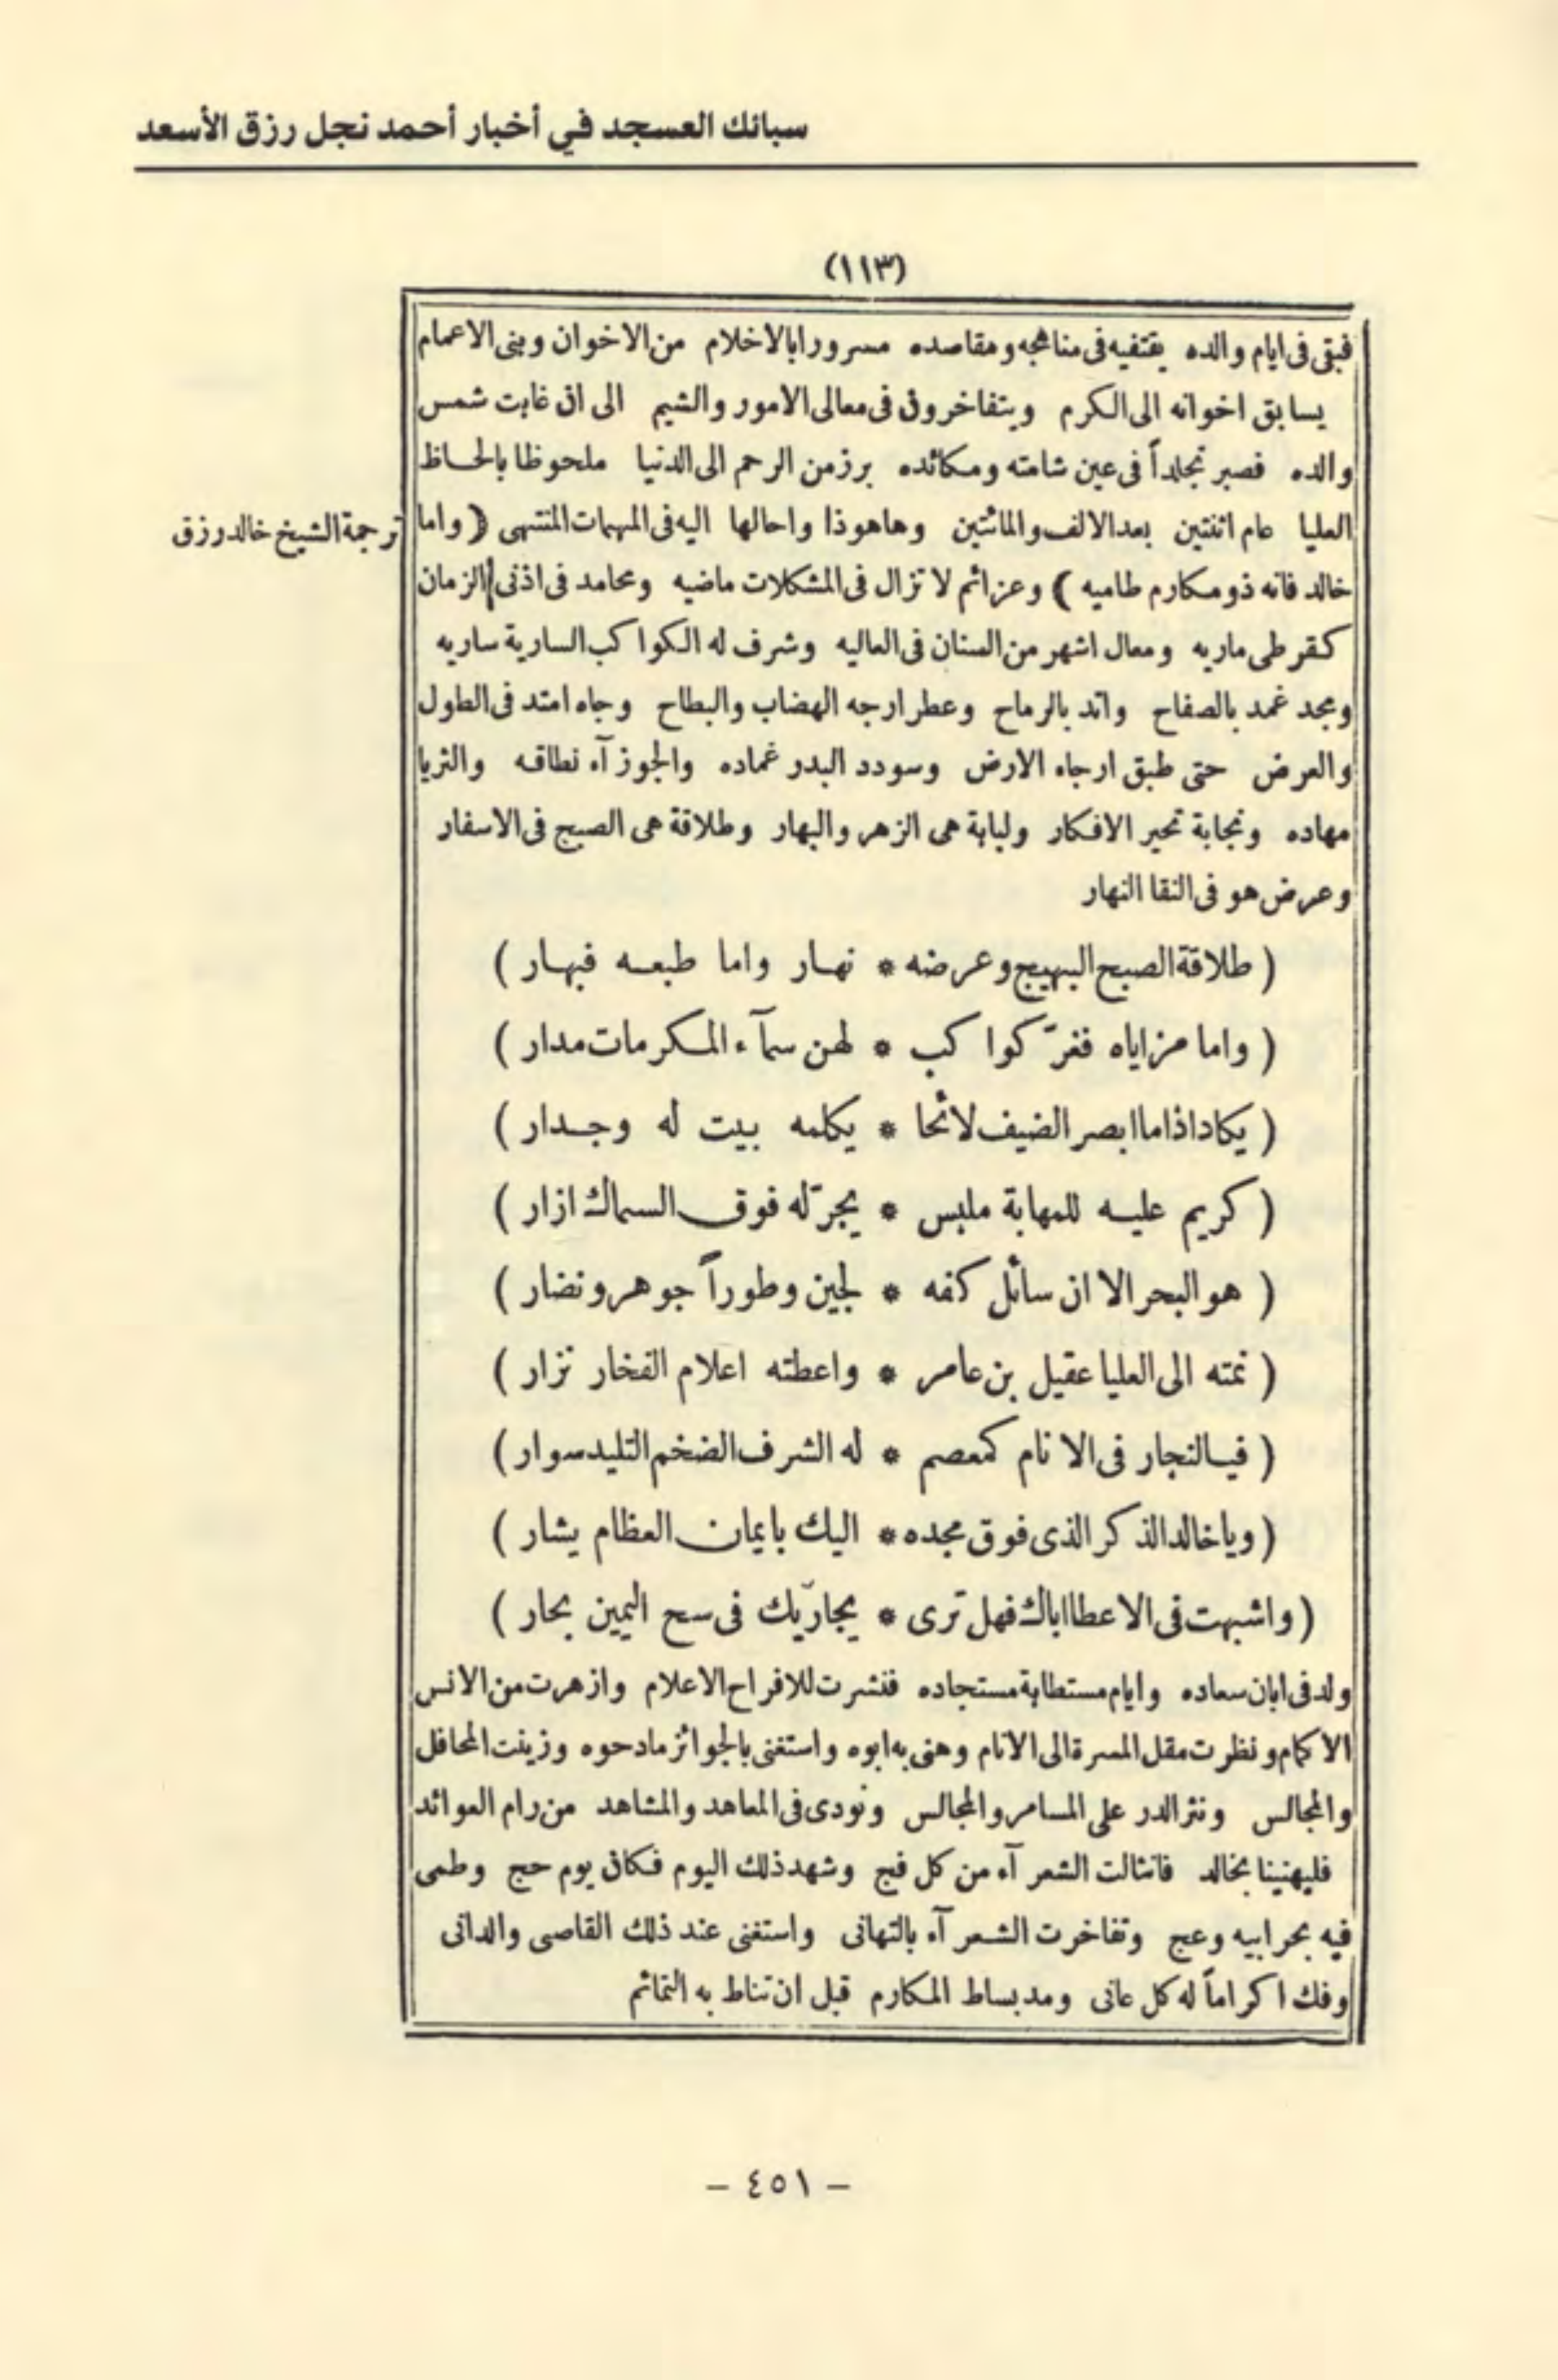 سبائك العسجد في أخبار أحمد نجل رزق الأسعد
(١١٣)
فبقى فى ايام والده يقتفيه فى مناهجه ومقاصده مسرورا بالاخلام من الاخوان وبنى الاعمام
يسابق اخوانه الى الكرم ويتفاخرون فى معالى الامور والشيم الى ان غابت شمس
والده فصبر تجلداً فى عين شامته ومكائده برز من الرحم الى الدنيا ملحوظا بالحاظ
العليا عام اثنتين بعد الالف والمائتين وهاهوذا واحالها اليه فى المهمات المنتهى ( واما
ترجمة الشيخ خالد رزق
خالد فانه ذو مكارم طاميه ) وعزائم لا تزال فى المشكلات ماضيه ومحامد فى اذنى الزمان
كقرطى ماريه ومعال اشهر من السنان فى العاليه وشرف له الكواكب السارية ساريه
ومجد غمد بالصفاح واتد بالرماح وعطر ارجه الهضاب والبطاح وجاه امتد فى الطول
والعرض حتى طبق ارجاء الارض وسودد البدر غماده والجوزآء نطاقه والثريا
مهاده ونجابة تحير الافكار ولبابة هى الزهر والبهار وطلاقة هى الصبح فى الاسفار
وعرض هو فى النقا النهار
( طلاقة الصبح البهيج وعرضه * نهار واما طبعه فبهار )
( واما مزاياه فغرّ كواكب * لهن سمآء المكرمات مدار )
( يكاد اذا ما ابصر الضيف لائحا * يكلمه بيت له وجدار )
( كريم عليه للمهابة ملبس * يجرّ له فوق السماك ازار )
( هو البحر الا ان سائل كفه * لجين وطوراً جوهر ونضار )
( نمته الى العليا عقيل بن عامر * واعطته اعلام الفخار نزار )
( فيالنجار فى الانام كمعصم * له الشرف الضخم التليد سوار )
( ويا خالد الذكر الذى فوق مجده * اليك بايمان العظام يشار )
( واشبهت فى الاعطا اباك فهل ترى * يجاريّك فى سح اليمين بحار )
ولد فى ابان سعاده وايام مستطابة مستجاده فنشرت للافراح الاعلام وازهرت من الانس
الاكمام ونظرت مقل المسرة الى الانام وهنى به ابوه واستغنى بالجوائز مادحوه وزينت المحافل
والمجالس ونثر الدر على المسامر والمجالس ونودى فى المعاهد والمشاهد من رام العوائد
فليهنينا بخالد فانثالت الشعرآء من كل فج وشهد ذلك اليوم فكان يوم حج وطمى
فيه بحر ابيه وعج وتفاخرت الشعرآء بالتهانى واستغنى عند ذلك القاصى والدانى
وفك اكراماً له كل عانى ومد بساط المكارم قبل ان تناط به التمائم
- ٤٥١ -